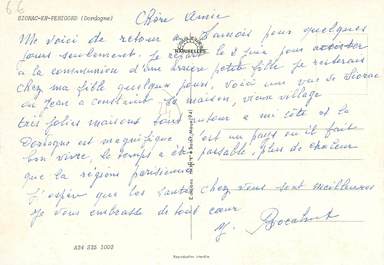 66
SIORAC-EN-PERIGORD (Dordogne)
Chère Amie
Me voici de retour au Lannois pour quelques
jours seulement. Je repars le 2 juin pour
à la communion d'une arrière petite fille je resterais
chez ma fille quelques jours, Voici une vue de Siorac
ou Jean a construit sa maison, vieux village
très jolies maisons tout autour a mi côte et la
Dordogne est magnifique c'est un pays ou il fait
bon vivre, le temps a été passable, plus de chaleur
que la région parisienne
J'espère que les santés chez vous sont meilleures
Je vous embrasse de tout coeur
A24 525 1002
Reproduction interdite